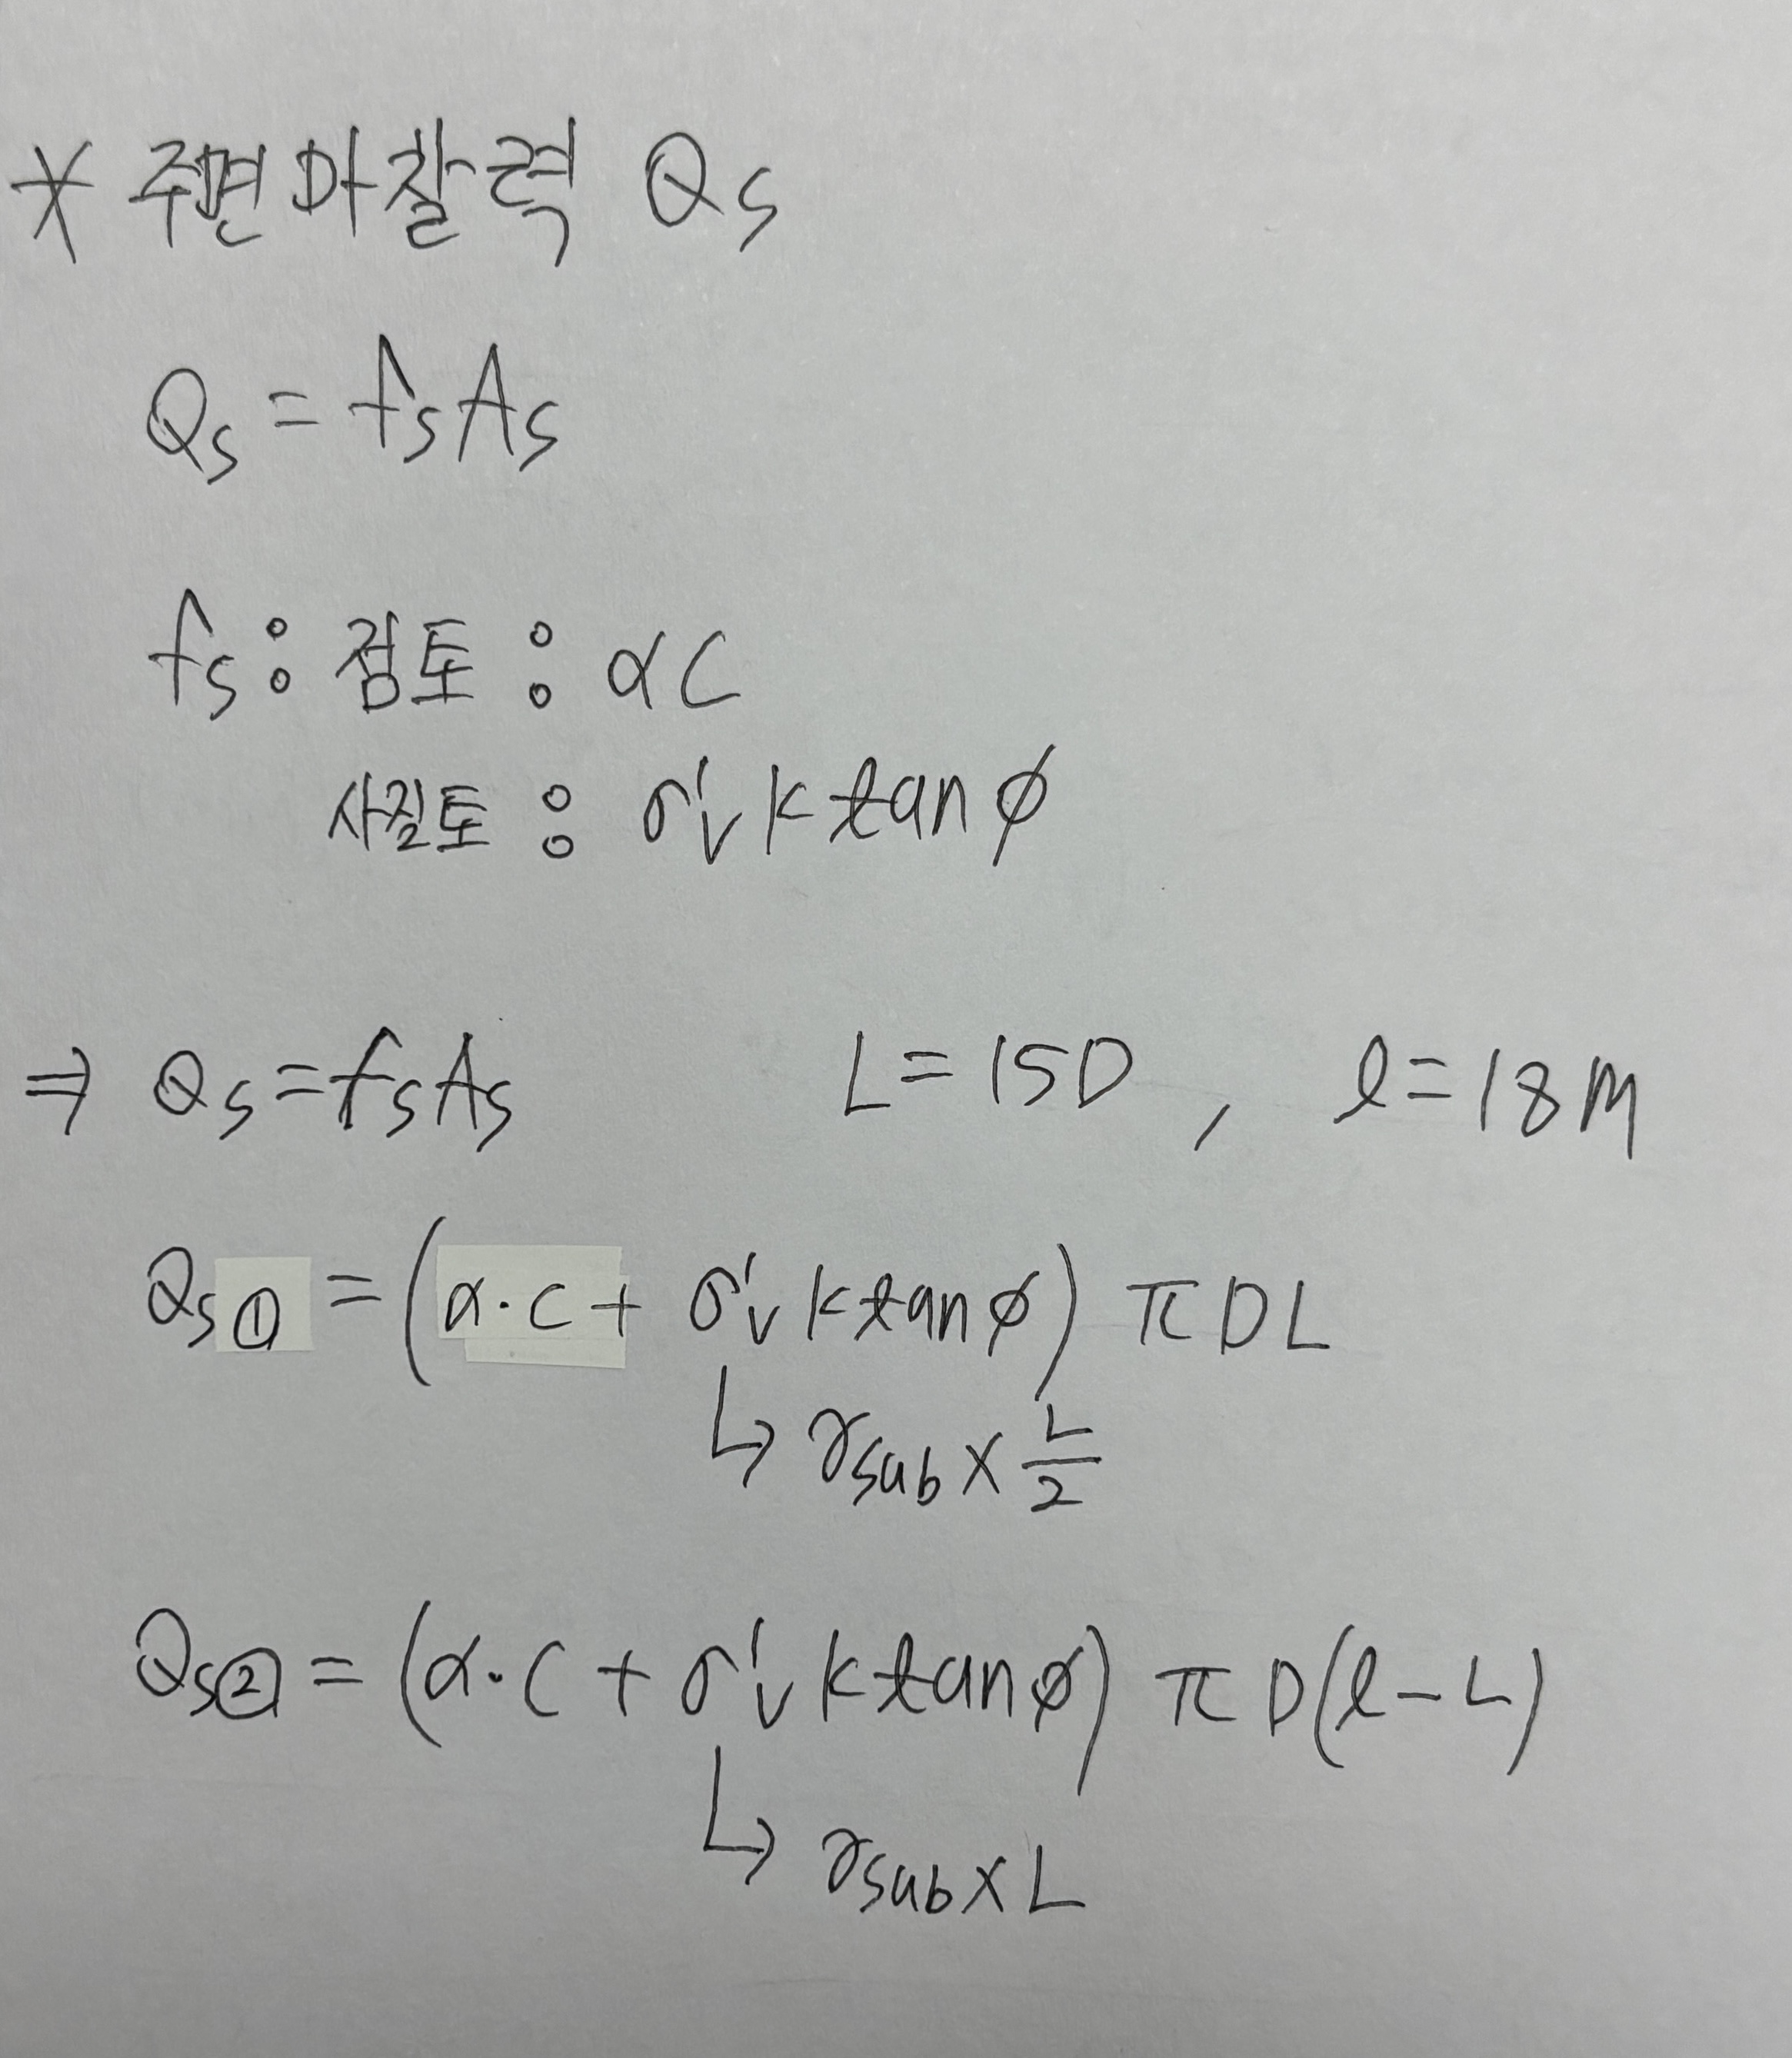 * 주면마찰력 Qs
Qs = fsAs
fs : 점토 : αC
사질토 : σ'v k tanø
⇒ Qs = fsAs L = 15D , ℓ = 18M
Qs① = (α·c + σ'v k tanø) π D L
↳ γsub × L/2
Qs② = (α·C + σ'v k tanø) π D (ℓ - L)
↳ γsub × L